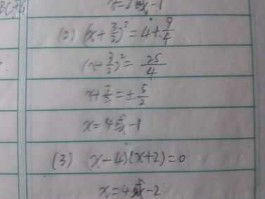 x=2或x-1
(2) (x+3/2)²=4+9/4
(x+3/2)²=25/4
x+3/2=±5/2
x=4或x-1
(3) (x-4)(x+2)=0
x=4或x-2